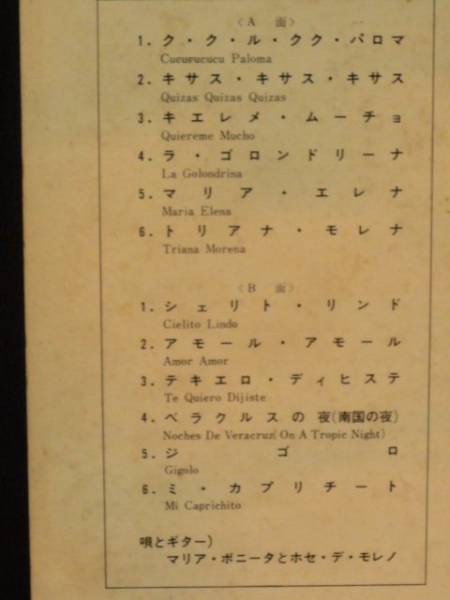 〈A 面〉
1. ク・ク・ル・クク・パロマ
Cucurucucu Paloma
2. キサス・キサス・キサス
Quizas Quizas Quizas
3. キエレメ・ムーチョ
Quiereme Mucho
4. ラ・ゴロンドリーナ
La Golondrina
5. マリア・エレナ
Maria Elena
6. トリアナ・モレナ
Triana Morena
〈B 面〉
1. シェリト・リンド
Cielito Lindo
2. アモール・アモール
Amor Amor
3. テキエロ・ディヒステ
Te Quiero Dijiste
4. ベラクルスの夜(南国の夜)
Noches De Veracruz(On A Tropic Night)
5. ジゴロ
Gigolo
6. ミ・カプリチート
Mi Caprichito
唄とギター)
マリア・ボニータとホセ・デ・モレノ